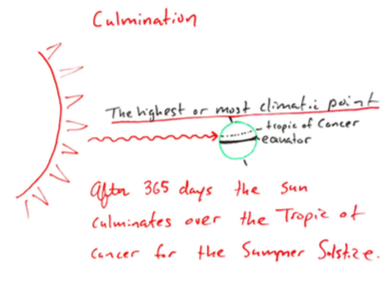 Culmination
The highest or most climatic point
tropic of Cancer
equator
After 365 days the sun
culminates over the Tropic of
Cancer for the Summer Solstize.